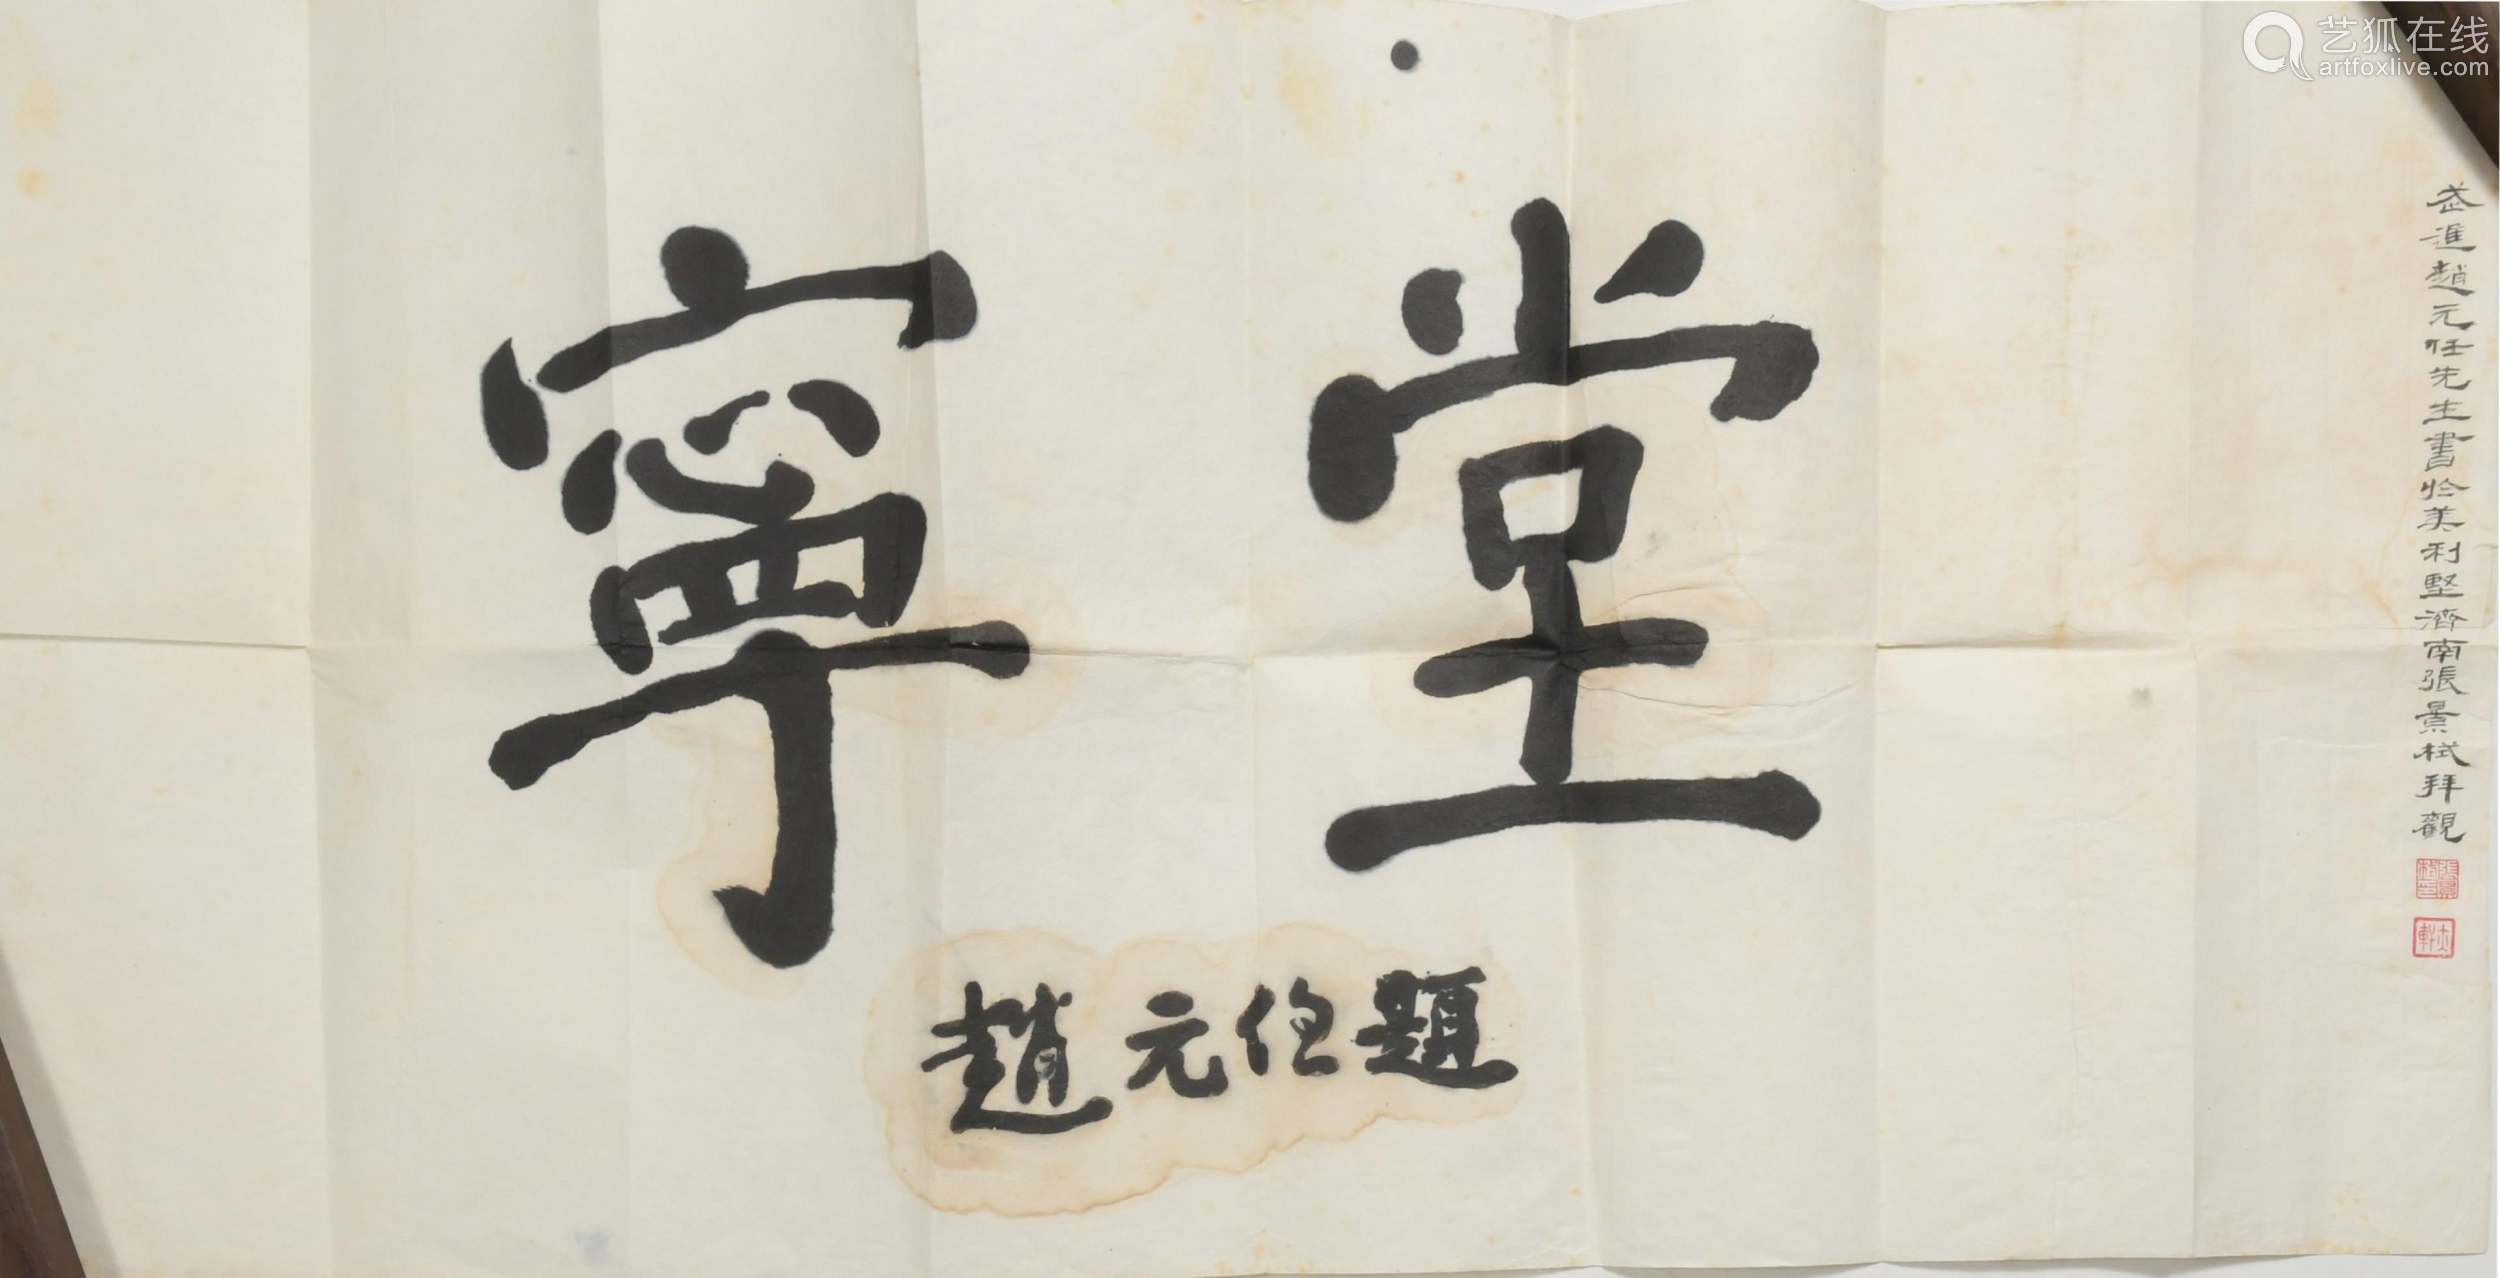 寧堂
趙元任題
武進趙元任先生書於美利堅濟南張景栻拜觀
张景栻印
艺狐在线
artfoxlive.com